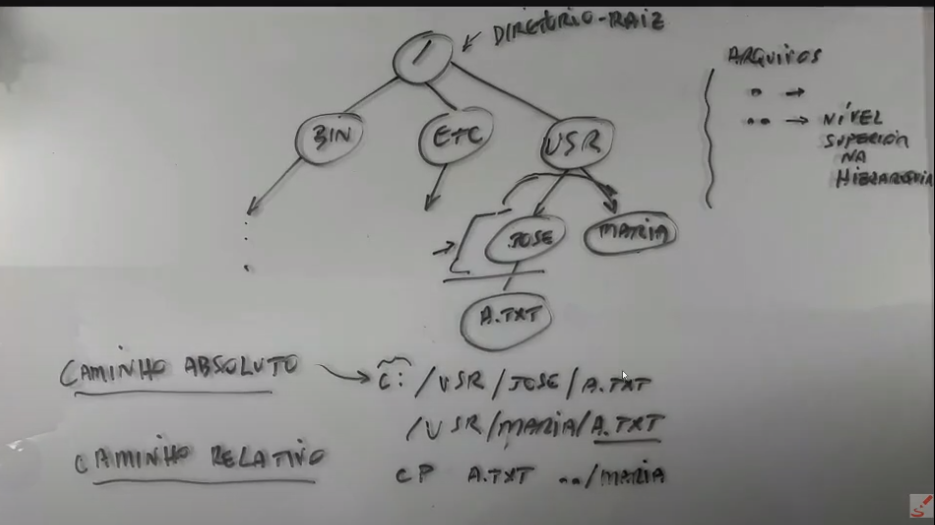 DIRETÓRIO-RAIZ
/
BIN
ETC
USR
JOSE
MARIA
A.TXT
ARQUIVOS
. →
.. → NÍVEL
SUPERIOR
NA
HIERARQUIA
CAMINHO ABSOLUTO → C: /USR/JOSE/A.TXT
/USR/MARIA/A.TXT
CAMINHO RELATIVO
CP A.TXT ../MARIA